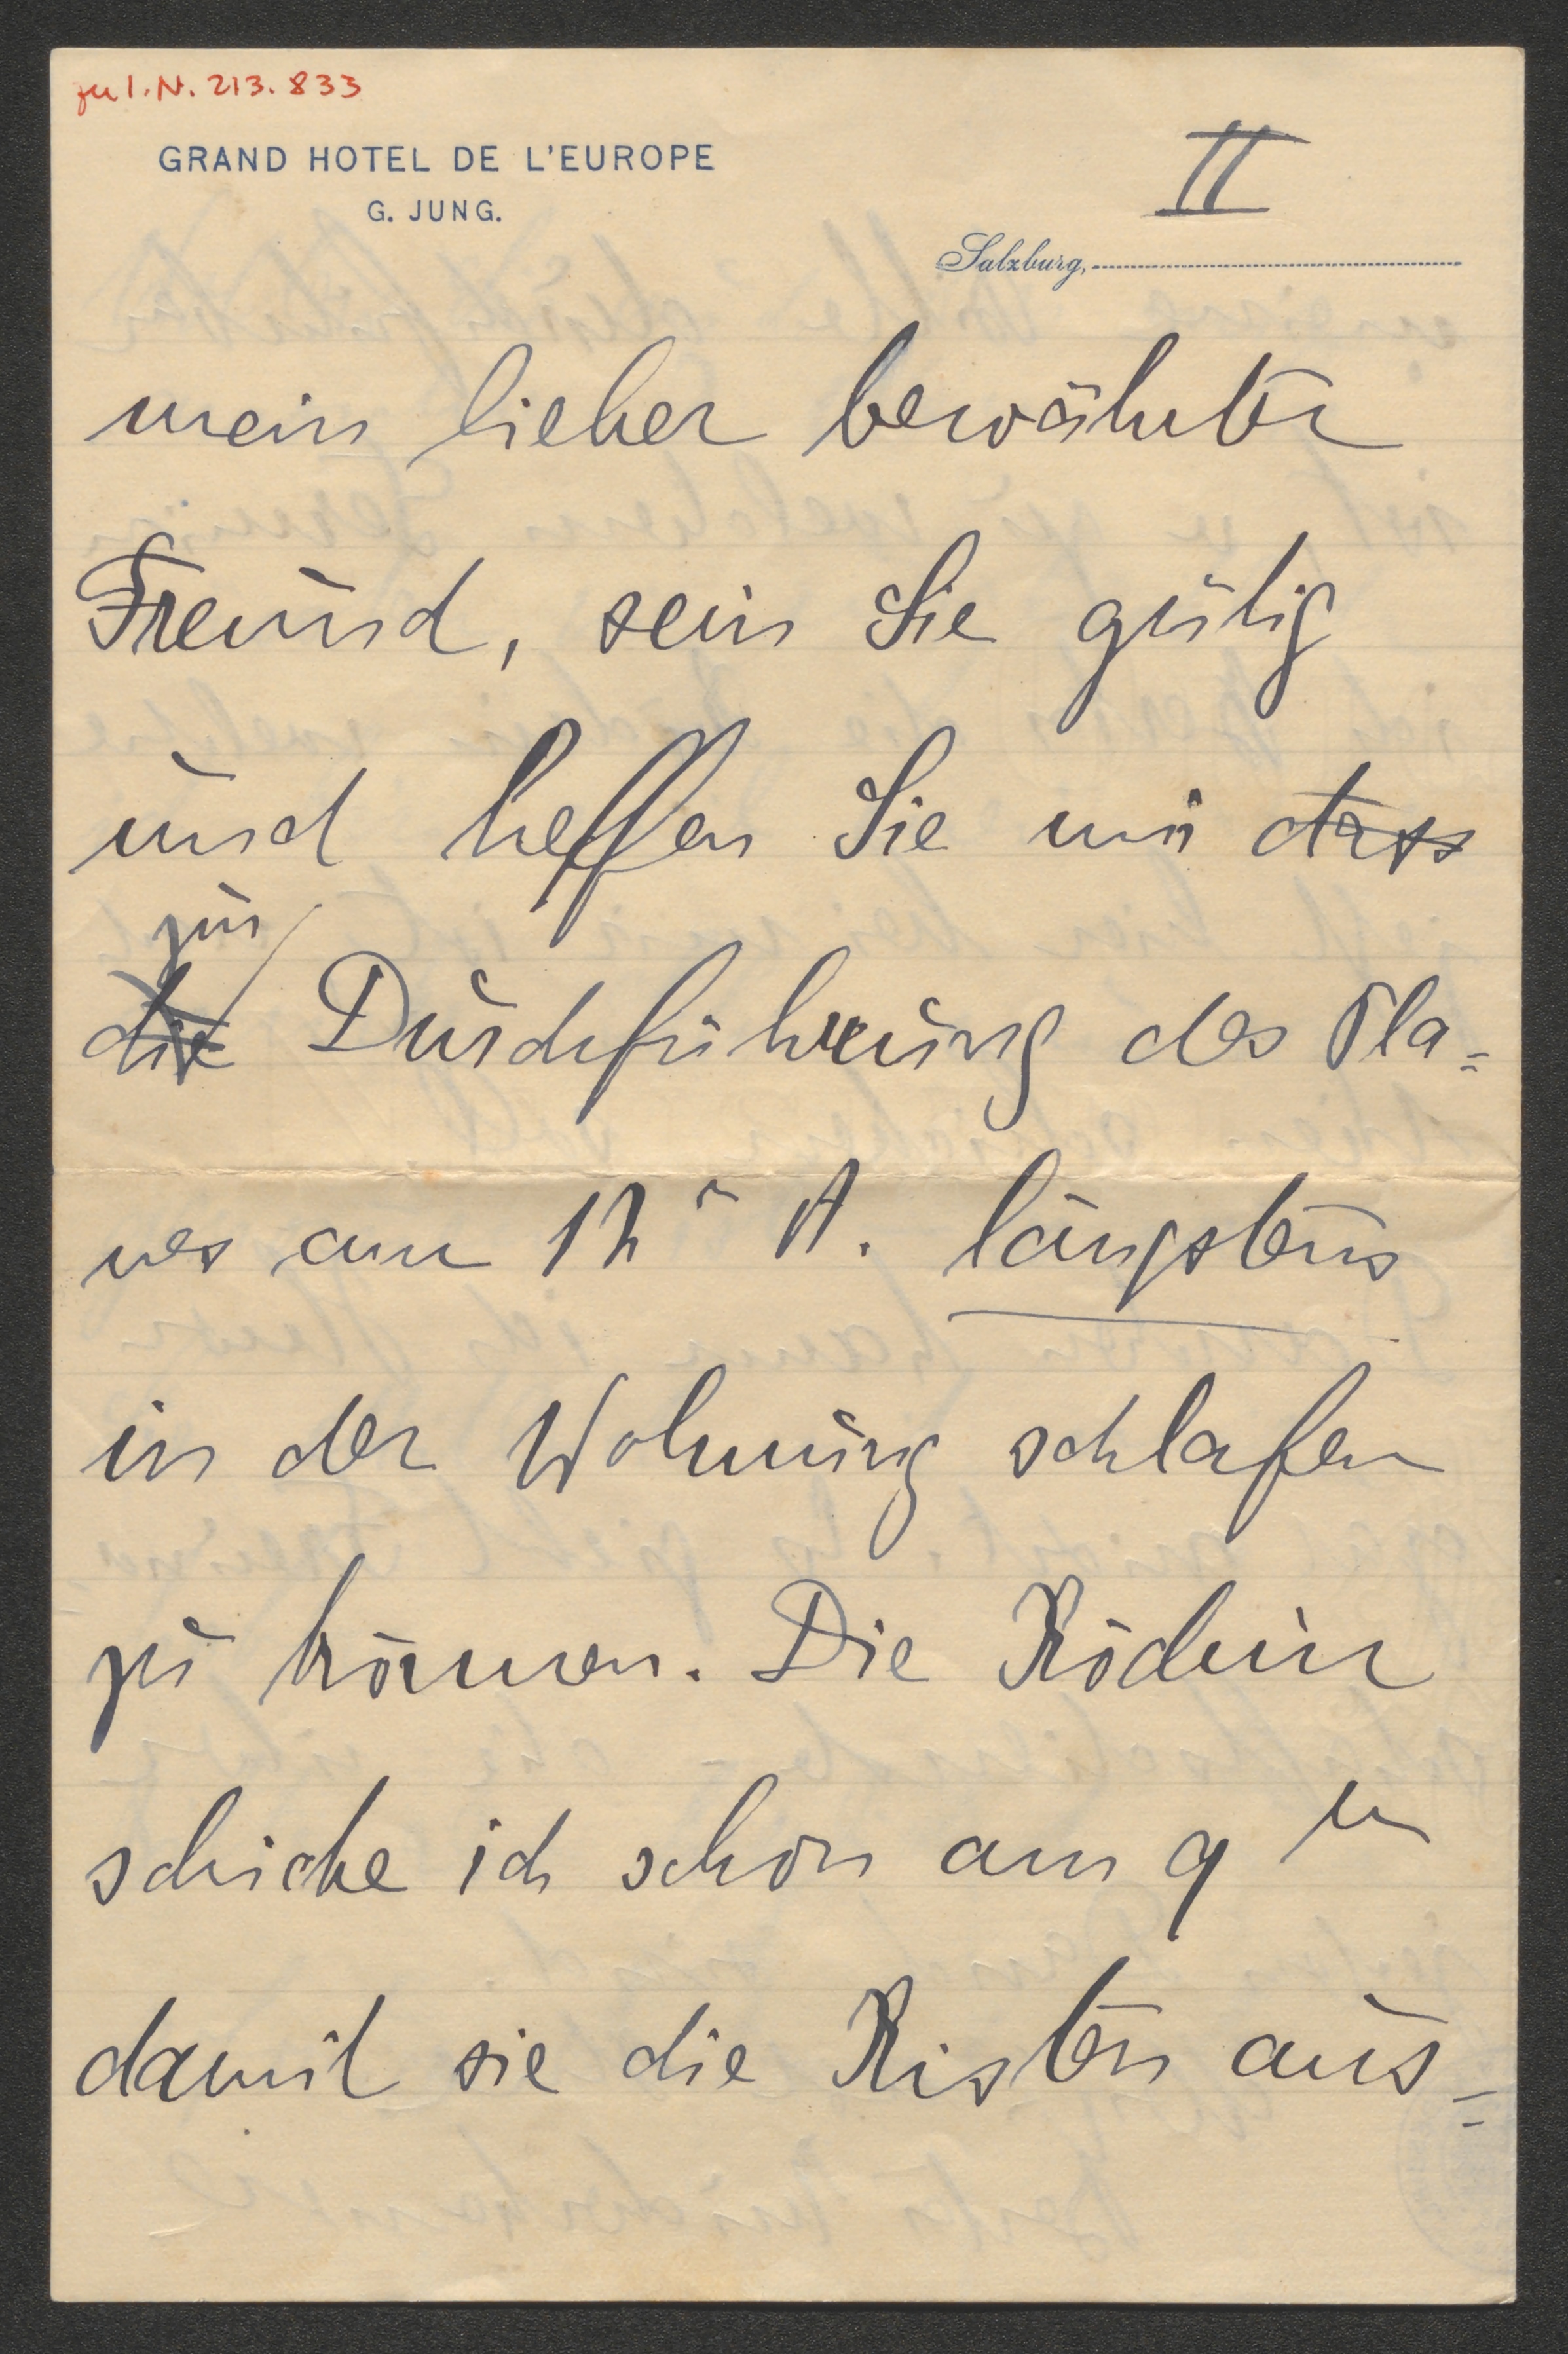 zu I.N. 213.833
GRAND HOTEL DE L'EUROPE
G. JUNG.
II
Salzburg,
mein lieber bewährter
Freund, sein Sie gütig
und helfen Sie mir dass
zur
die Durchführung des Pla=
nes am 12 A. längstens
in der Wohnung schlafen
zu können. Die Köchin
schicke ich schon am 9ten
damit sie die Kisten aus=